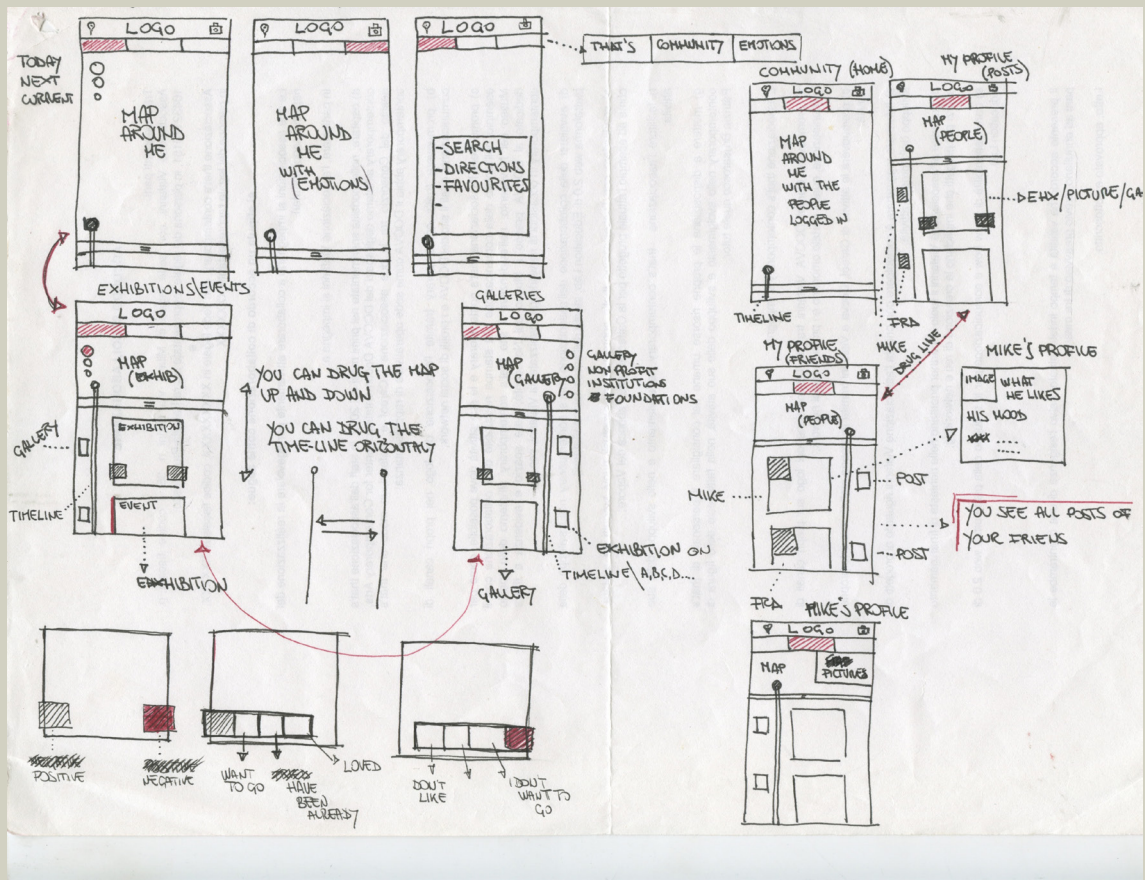 LOGO
TODAY
NEXT
CURRENT
MAP
AROUND
ME
LOGO
MAP
AROUND
ME
WITH
EMOTIONS
LOGO
-SEARCH
-DIRECTIONS
-FAVOURITES
THAT'S COMMUNITY EMOTIONS
COMMUNITY (HOME)
LOGO
MAP
AROUND
ME
WITH THE
PEOPLE
LOGGED IN
TIMELINE
MY PROFILE
(POSTS)
LOGO
MAP
(PEOPLE)
MIKE
EXHIBITIONS\EVENTS
LOGO
MAP
(EXHIB)
GALLERY
TIMELINE
EXHIBITION
EVENT
EXHIBITION
YOU CAN DRUG THE MAP
UP AND DOWN
YOU CAN DRUG THE
TIME-LINE ORIZONTALY
GALLERIES
LOGO
MAP
(GALLERY)
GALLERY
NON PROFIT
INSTITUTIONS
FOUNDATIONS
EXHIBITION ON
TIMELINE\A,B,C,D...
GALLERY
DRUG LINE
MY PROFILE
(FRIENDS)
LOGO
MAP
(PEOPLE)
MIKE
POST
POST
MIKE'S PROFILE
IMAGE
WHAT
HE LIKES
HIS MOOD
YOU SEE ALL POSTS OF
YOUR FRIENS
MIKE'S PROFILE
LOGO
MAP
PICTURES
POSITIVE
NEGATIVE
WANT
TO GO
HAVE
BEEN
ALREADY
LOVED
DON'T
LIKE
I DON'T
WANT TO
GO